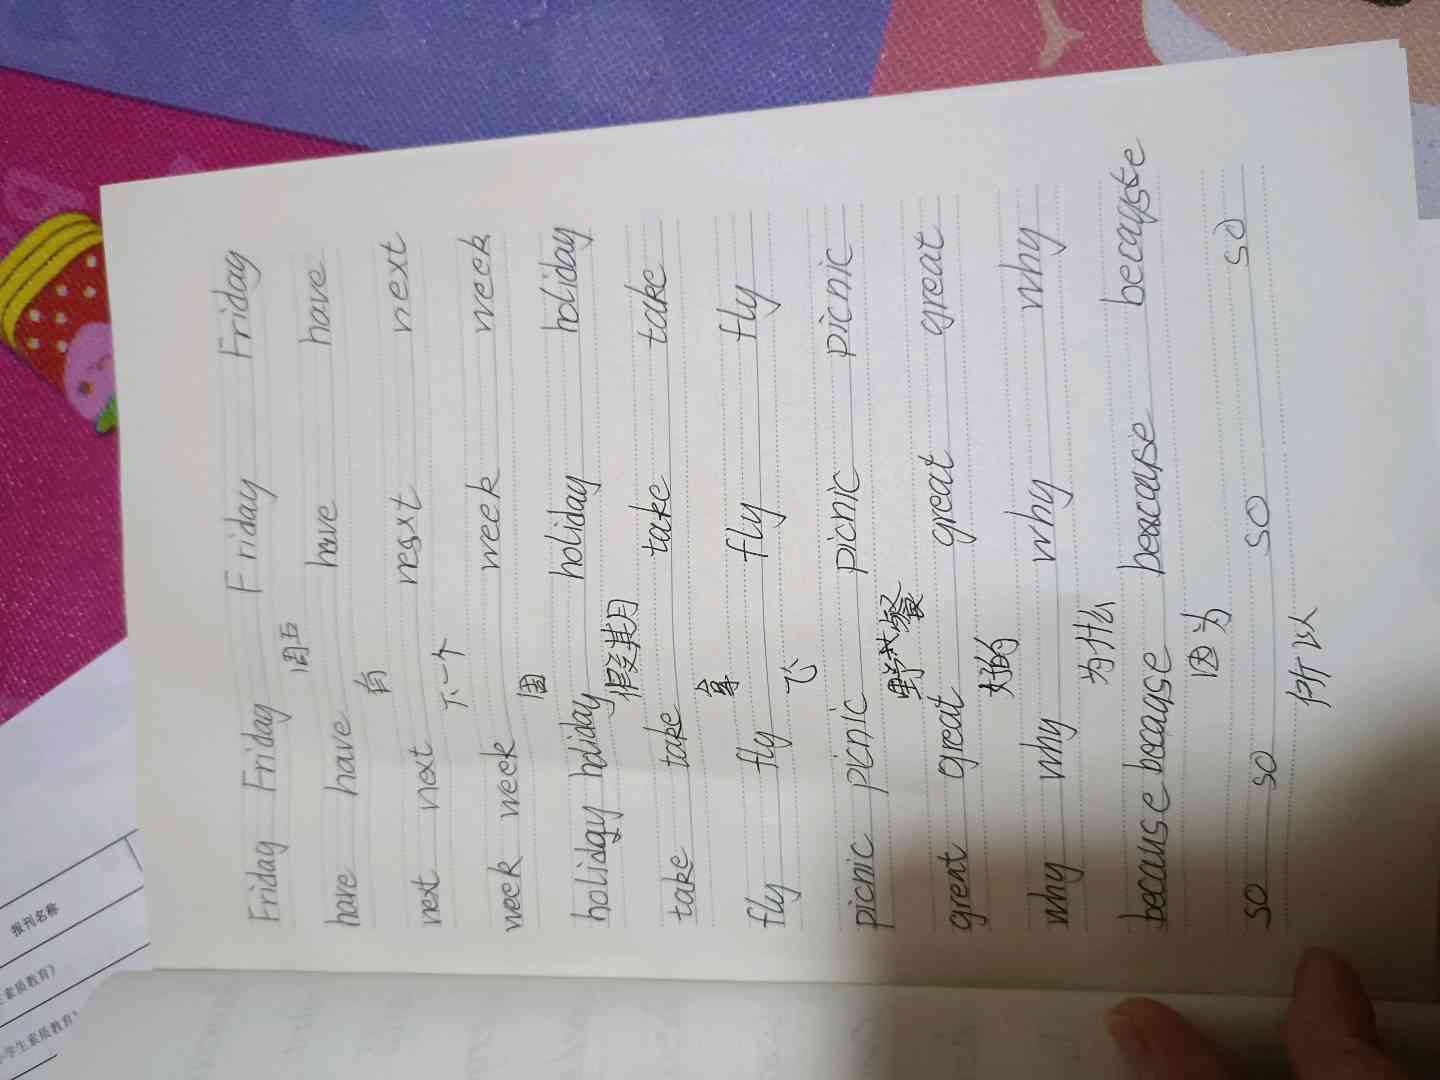 Friday Friday Friday Friday
周五
have have have have
有
next next next next
下一个
week week week week
周
holiday holiday holiday holiday
假期
take take take take
拿
fly fly fly fly
飞
picnic picnic picnic picnic
野餐
great great great great
好的
why why why why
为什么
because because because because
因为
so so so so
所以
报刊名称
素质教育》
小学生素质教育》